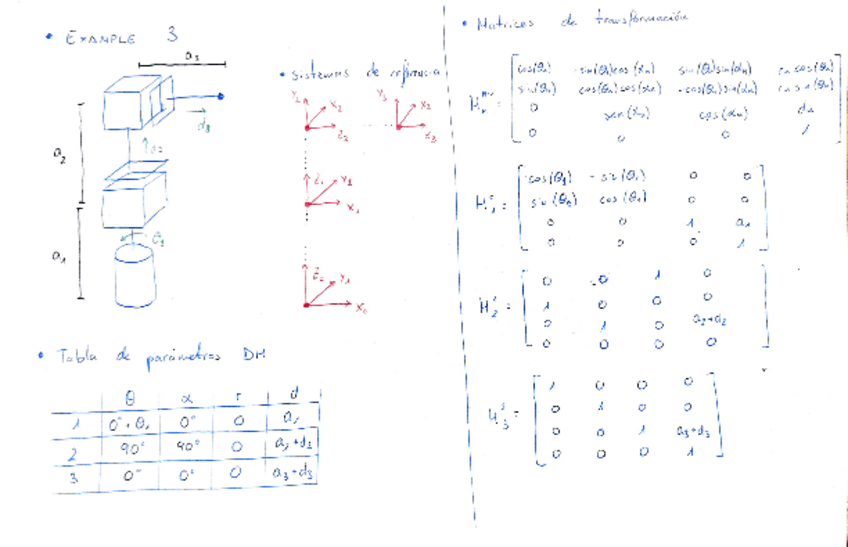 • EXAMPLE 3
a3
d3
a2
d2
θ1
a1
• sistemas de referencia
Y2 X2 Z2
Y3 X3 Z3
Z1 Y1 X1
Z0 Y1 X0
• Tabla de parámetros DH
θ α r d
1 0°+θ1 0° 0 a1
2 90° 90° 0 a2+d2
3 0° 0° 0 a3+d3
• Matrices de transformación
cos(θn) -sin(θn)cos(αn) sin(θn)sin(αn) rn cos(θn)
sin(θn) cos(θn)cos(αn) -cos(θn)sin(αn) rn sin(θn)
0 sen(αn) cos(αn) dn
0 0 0 1
H⁰₁ =
cos(θ1) -sin(θ1) 0 0
sin(θ1) cos(θ1) 0 0
0 0 1 a1
0 0 0 1
H¹₂ =
0 0 1 0
1 0 0 0
0 1 0 a2+d2
0 0 0 0
H²₃ =
1 0 0 0
0 1 0 0
0 0 1 a3+d3
0 0 0 1